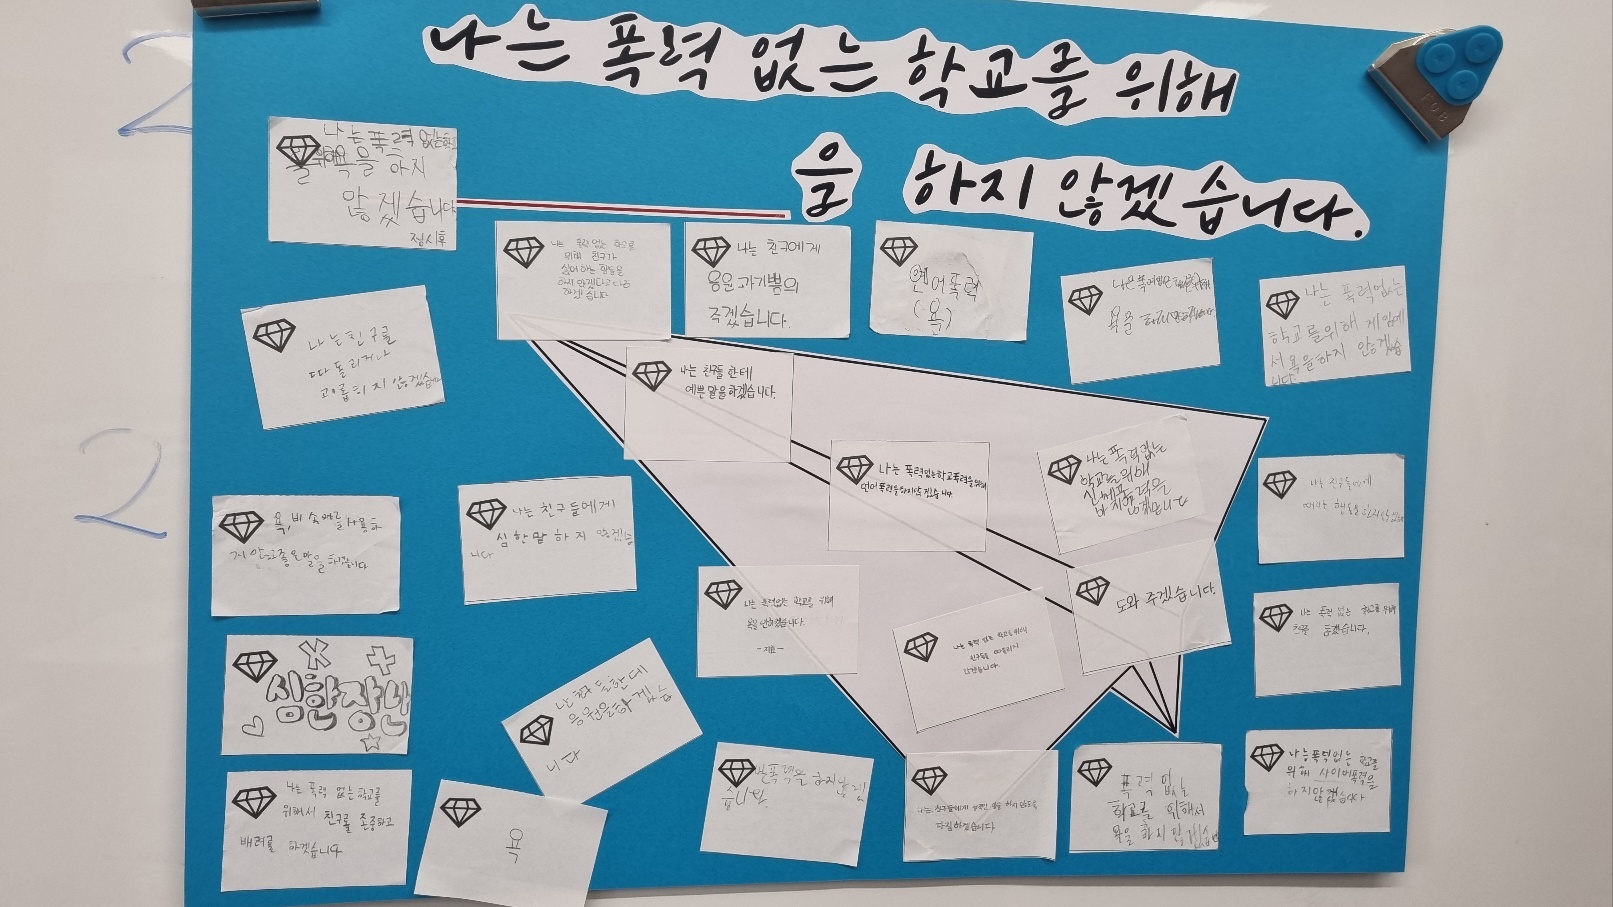 나는 폭력 없는 학교를 위해
을 하지 않겠습니다.
나는폭력 없는학교
를 위해 욕을 하지
않겠습니다
정시후
나는 폭력 없는 학교를
위해 친구가
싫어하는 행동을
하지 않겠다고 다짐
하겠습니다
나는 친구에게
응원과 기쁨의
주겠습니다.
언어폭력
(욕)
나는 폭력없는 학교를위해
욕을 하지 않겠습니다
나는 폭력없는
학교를위해 게임에
서 욕을하지 않겠습
니다.
나는친구를
따돌리거나
괴롭히지 않겠습니다
나는 친구들 한테
예쁜 말을하겠습니다.
나는 폭력없는학교폭력을위해
언어폭력을하지않겠습니다
나는폭력없는
학교를위해
신체폭력을
하지않겠습니다
나는 친구들에게
행동을 하지
욕, 비속어를 사용하
지 않고 좋은말을 하겠습니다
나는 친구들에게
심한말 하지 않겠습
니다
나는 폭력없는 학교를 위해
욕을 안하겠습니다.
나는 폭력 없는 학교를 위해서
친구들을 따돌리지
않겠습니다.
도와 주겠습니다.
나는 폭력 없는 학교를 위해
친구를 돕겠습니다.
심한장난
나는 친구들한테
응원을하겠습
니다
나는 폭력 없는 학교를
위해서 친구를 존중하고
배려를 하겠습니다
욕
폭력을 하지않겠
습니다
나는 친구들에게 말을 하지 않도록
다짐하겠습니다
폭력 없는
학교를 위해서
욕을 하지 않겠습니다
나는폭력없는 학교를
위해 사이버폭력을
하지않겠습니다